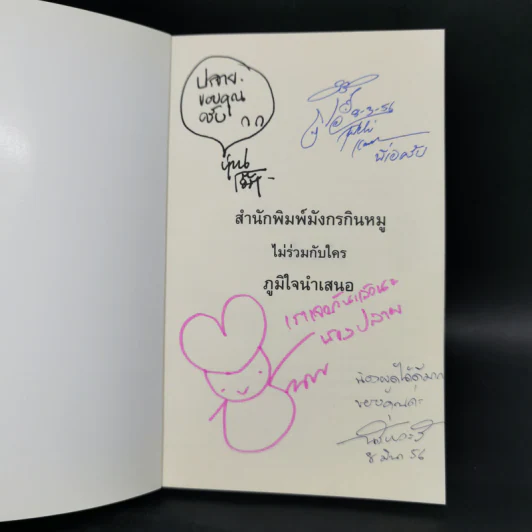 ปลาย.
ขอบคุณ
ครับ ^^
8-3-56
พี่เอ๋ครับ
สำนักพิมพ์มังกรกินหมู
ไม่ร่วมกับใคร
ภูมิใจนำเสนอ
เราเจอกันแล้วนะ
น้องปลาย
ขอบคุณค่ะ
8 มีนา 56